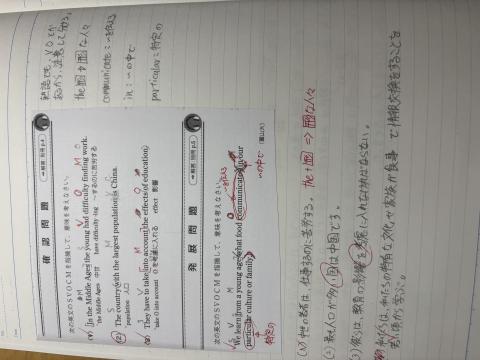 熟語でもVOとか
あるから、注意してみる。
the+形 → 形な人々
communicate：〜を伝える
in：〜の中で
particular：特定の
確認問題
解答 別冊 p.4
次の英文のSVOCMを指摘して、意味を考えなさい。
(1) In the Middle Ages the young had difficulty finding work.
the Middle Ages 中世 have difficulty -ing 〜するのに苦労する
(2) The country with the largest population is China.
population 人口
(3) They have to take into account the effects of education.
take O into account Oを考慮に入れる effect 影響
発展問題
解答 別冊 p.5
次の英文のSVOCMを指摘して、意味を考えなさい。
We learn from a young age what food communicates in our
particular culture or family.
(富山大)
〜を伝える
〜の中で
特定の
(1) 中世の若者は、仕事するのに苦労する。 the+形 ⇒ 形な人々
(2) 最も人口が多い国は中国です。
(3) 彼らは、教育の影響を考慮に入れなければならない。
私たちは、私たちの特有な文化や家族が食事で情報交換をすることを
若い頃から学ぶ。